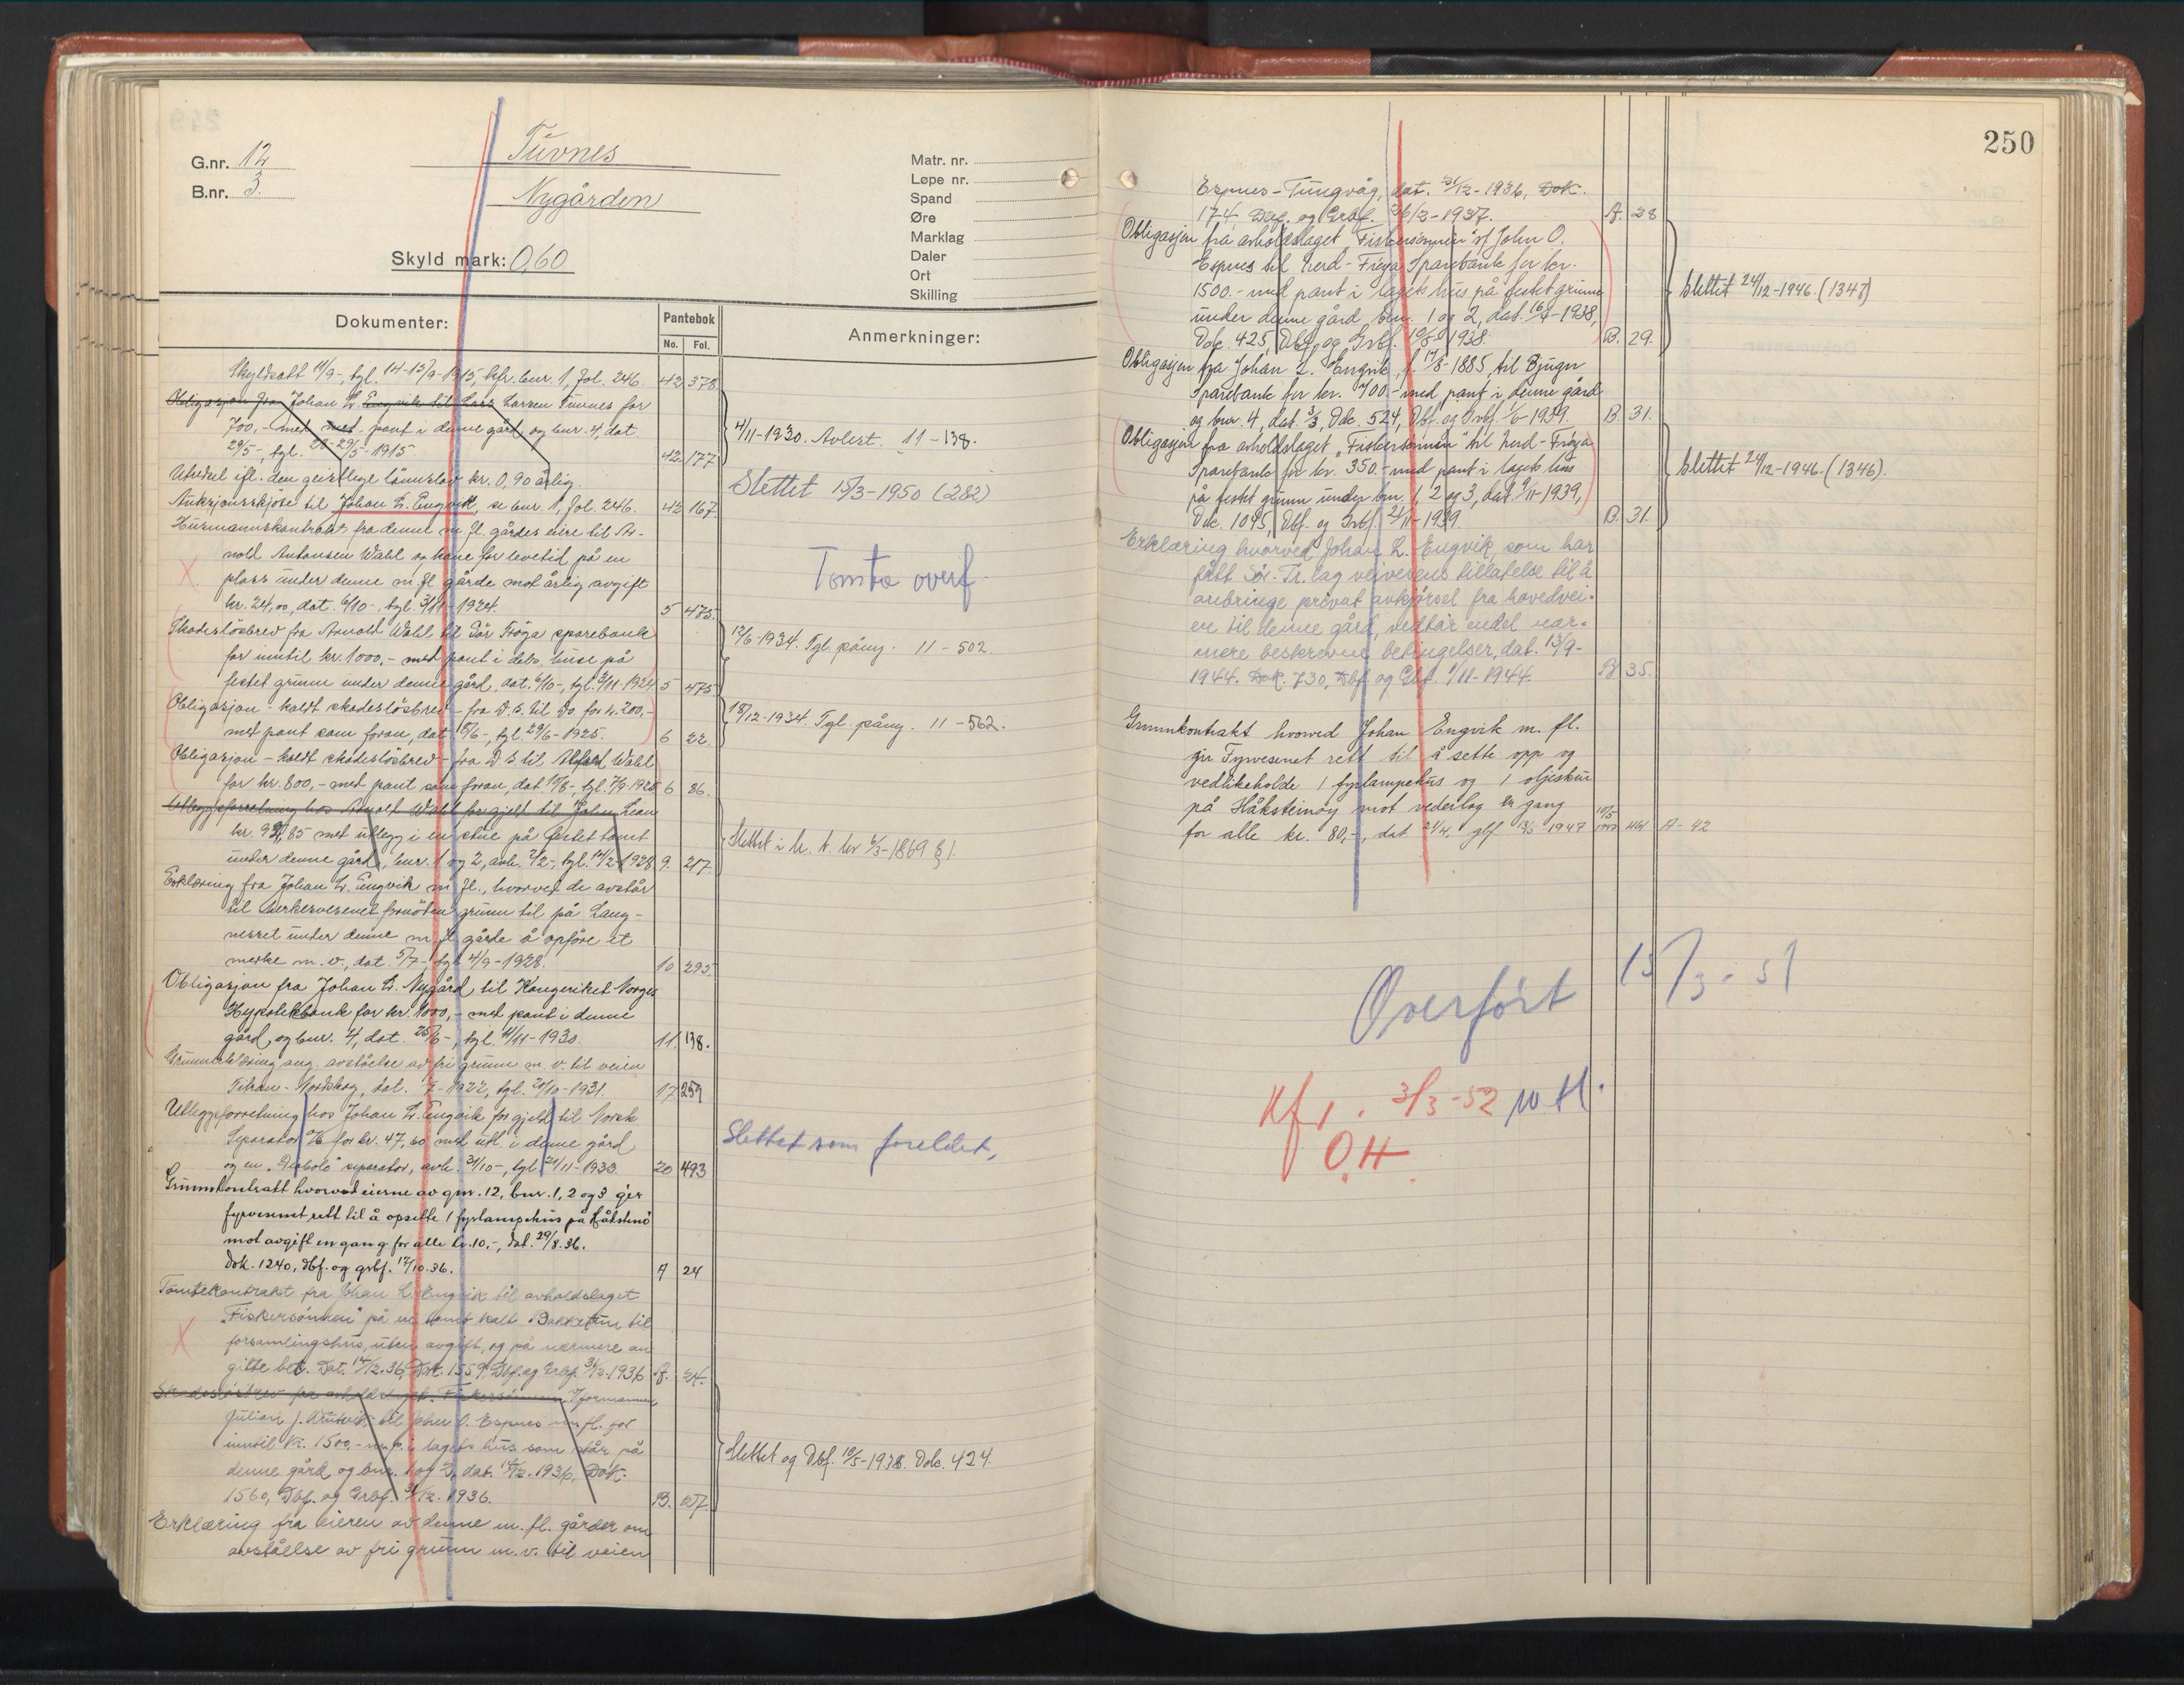 G.nr. 12
B.nr. 3
Tuvnes
Nygården
Skyld mark: 0,60
Matr. nr.
Løpe nr.
Spand
Øre
Marklag
Daler
Ort
Skilling
Dokumenter:
Pantebok
No. Fol.
Anmerkninger:
Skyldsatt 11/9-, tgl. 14-15/9-1915, kfr. bnr. 1, fol. 246. 42 378
Obligasjon fra Johan L. Engvik til Lars Larsen Tuvnes for
700,- med pant i denne gård og bnr. 4, dat.
29/5-, tgl. 28-29/5-1915. 42 177
4/11-1930. Avlest. 11-138.
Utredsel efl. den geistlige lønnslov kr. 0,90 årlig.
Slettet 15/3-1950 (282)
Auksjonsskjøte til Johan L. Engvik, se bnr. 1, fol. 246. 42 167
Husmannskontrakt fra denne m. fl. gårdes eire til Ar-
nold Antonsen Wahl og kone for levetid på en
plass under denne m. fl. gårde mot årlig avgift
kr. 24,00, dat. 6/10-, tgl. 3/11-1924. 5 475
Tomta overf.
Skadesløsbrev fra Arnold Wahl til Sør Frøya sparebank
for inntil kr. 1000,- med pant i dets huse på
festet grunn under denne gård, dat. 6/10-, tgl. 3/11-1924 5 475
12/6-1934. Tgl. påny. 11-502.
Obligasjon - kaldt skadesløsbrev - fra D.S. til Do. for kr. 200,-
med pant som foran, dat. 15/6-, tgl. 29/6-1925. 6 22
18/12-1934. Tgl. påny. 11-562.
Obligasjon - kaldt skadesløsbrev - fra D.S. til Alfred Wahl
for kr. 800,- med pant som foran, dat. 18/8-, tgl. 7/9-1925 6 86.
Utleggsforretning hos Arnolt Wahl for gjeld til Johan Lian
kr. 92,85 med utlegg i en stue på festet tomt
under denne gård, bnr. 1 og 2, avh. 2/2-, tgl. 14/2-1928 9. 217.
Slettet i h. t. lov 6/3-1869 § 1.
Erklæring fra Johan L. Engvik m. fl., hvorved de avstår
til Merkevesenet fornøden grunn til på Lang-
nesset under denne m. fl. gårde å opføre et
merke m. v., dat. 5/7-, tgl. 4/9-1928. 10 295.
Obligasjon fra Johan L. Nygård til Kongeriket Norges
Hypotekbank for kr. 1000,- med pant i denne
gård og bnr. 4, dat. 25/6-, tgl. 4/11-1930. 11. 138.
Grunnerklæring ang. avståelse av fri grunn m. v. til veien
Titran - Nordskag, dat. 1922, tgl. 20/10-1931. 17 259
Utleggsforretning hos Johan L. Engvik for gjeld til Norsk
Separator A/S for kr. 47,60 med utl. i denne gård
og en „Diabolo" separator, avh. 31/10-, tgl. 21/11-1933. 20 493
Slettet som foreldet,
Grunnkontrakt hvorved eierne av gnr. 12, bnr. 1, 2 og 3 gir
fyrvesenet rett til å opsette 1 fyrlampehus på Håkstenø
mot avgift en gang for alle kr. 10,-, dat. 29/8.36.
Dok. 1240, dbf. og grbf. 17/10.36. A 24
Tomtekontrakt fra Johan L. Engvik til avholdslaget
„Fiskersønnen" på en tomt kalt Bakketun til
forsamlingshus, uten avgift, og på nærmere an
gitte bet. Dat. 14/12.36, Dok. 1559. Dbf. og Grbf. 31/12.1936 A. 24.
Skadesløsbrev fra avholdslaget Fiskersønnen v/formannen
Julian J. til Johan O. Espnes m. fl. for
inntil kr. 1500,- m. p. i lagets hus som står på
denne gård og bnr. 1 og 2, dat. 14/12.1936, Dok.
1560, Dbf. og Grbf. 31/12.1936. B. 27.
Slettet og Dbf. 10/5-1938. Dok. 424.
Erklæring fra eieren av denne m. fl. gårder om
avståelse av fri grunn m. v. til veien
250
Espnes-Tungvåg, dat. 21/12-1936, Dok.
174, Dbf. og Grbf. 26/2-1937. A. 28
Obligasjon fra avholdslaget „Fiskersønnen" v/ John O.
Espnes til Nord-Frøya Sparebank for kr.
1500.- med pant i lagets hus på festet grunn
under denne gård, bnr. 1 og 2, dat. 16/4-1938,
Dok. 425, Dbf. og Grbf. 10/5-1938. B. 29.
Slettet 24/12-1946. (1347)
Obligasjon fra Johan L. Engvik, f. 17/8-1885, til Bjugn
Sparebank for kr. 700.- med pant i denne gård
og bnr. 4, dat. 3/3, Dok. 524, Dbf. og Grbf. 1/6-1939. B. 31.
Obligasjon fra avholdslaget „Fiskersønnen" til Nord-Frøya
Sparebank for kr. 350.- med pant i lagets hus
på festet grunn under bnr. 1, 2 og 3, dat. 9/11-1939,
Dok. 1095, Dbf. og Grbf. 21/11-1939. B. 31.
Slettet 24/12-1946. (1346).
Erklæring hvorved Johan L. Engvik, som har
fått Sør-Tr.lag veivesens tillatelse til å
anbringe privat avkjørsel fra hovedvei-
en til denne gård, vedtar endel nær-
mere beskrevne betingelser, dat. 13/9-
1944. Dok. 730, Dbf. og Gbf. 1/11-1944. B. 35.
Grunnkontrakt hvorved Johan Engvik m. fl.
gir Fyrvesenet rett til å sette opp og
vedlikeholde 1 fyrlampehus og 1 oljeskur
på Håksteinøy mot vederlag en gang
for alle kr. 80,-, dat. 21/4, glf. 13/5-1947 A-42
Overført 15/3-51
Kfr. 3/3-52
O.H.